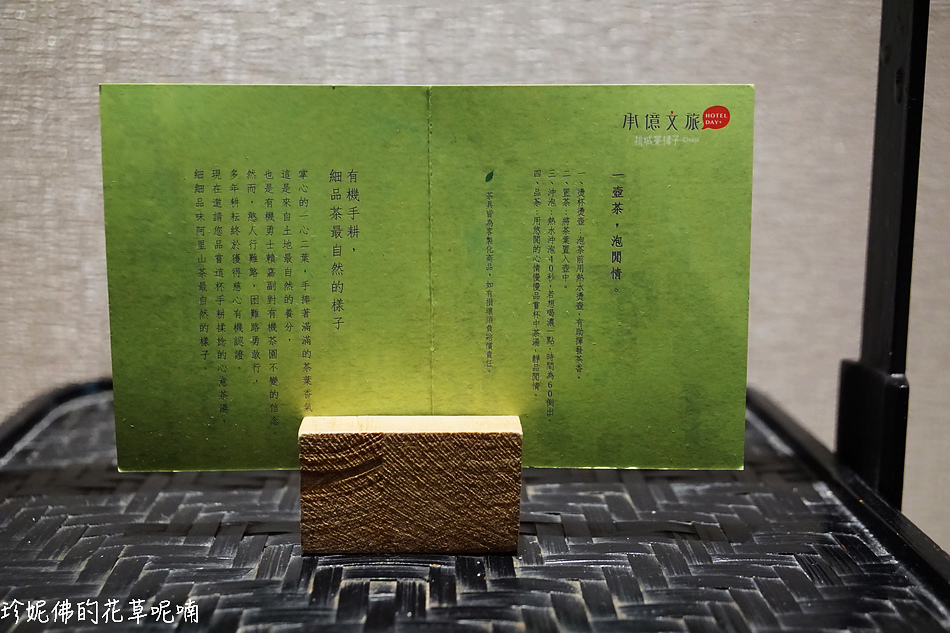 承億文旅
HOTEL
DAY+
桃城茶樣子 Chiayi
一壺茶，泡閒情。
一、燙杯燙壺：泡茶前用熱水燙壺，有助揮發茶香。
二、置茶：將茶葉置入壺中。
三、沖泡：熱水沖泡40秒，若想喝濃一點，時間為60倒出。
四、品茶：用悠閒的心情慢慢品嘗杯中茶湯，靜品閒情。
茶具皆為客製化商品，如有損壞須負賠償責任。
有機手耕，
細品茶最自然的樣子
掌心的一心二葉，手捧著滿滿的茶葉香氣
這是來自土地最自然的養分，
也是有機勇士賴嘉副對有機茶園不變的信念。
然而，憨人行難路，困難路勇敢行，
多年耕耘終於獲得慈心有機認證。
現在邀請您品嘗這杯手耕揉捻的心意茶湯，
細細品味阿里山茶最自然的樣子。
珍妮佛的花草呢喃